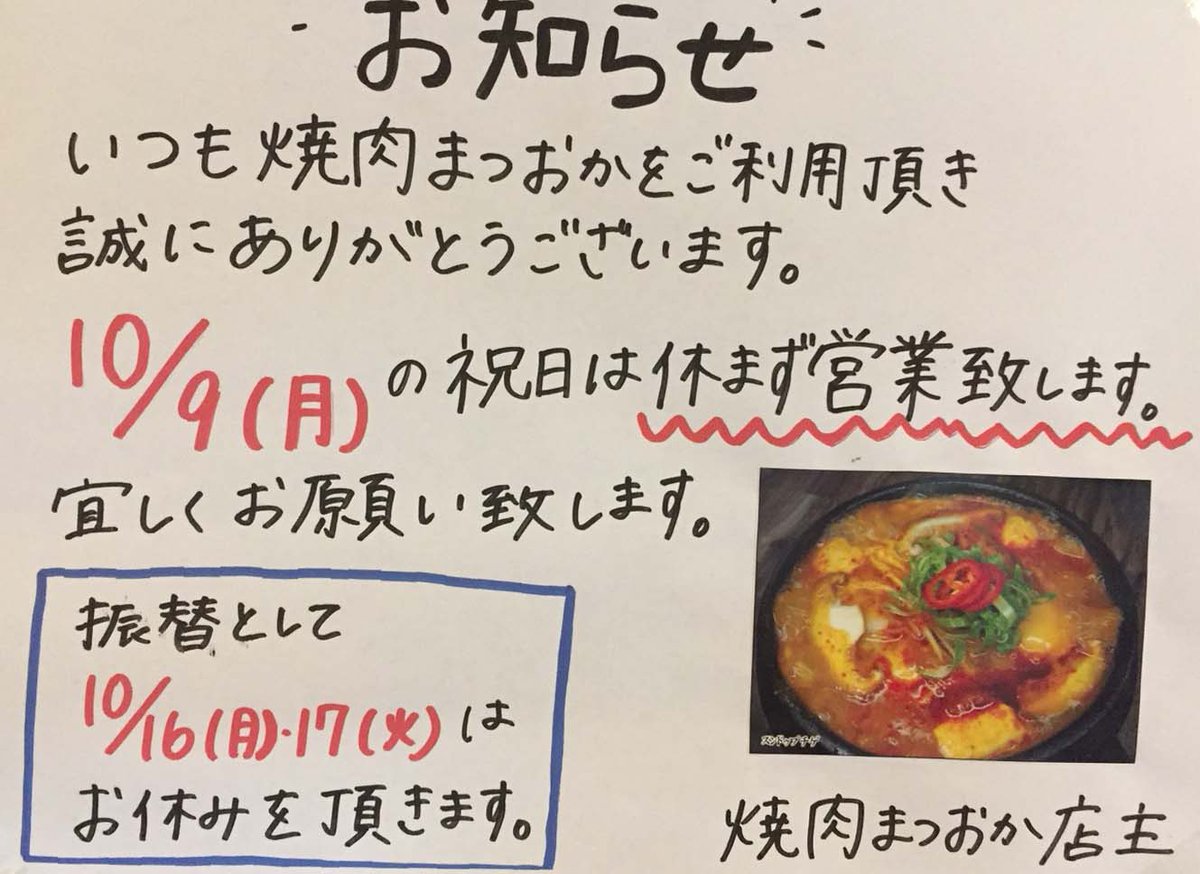 お知らせ
いつも焼肉まつおかをご利用頂き
誠にありがとうございます。
10/9(月)の祝日は休まず営業致します。
宜しくお願い致します。
振替として
10/16(月)・17(火)は
お休みを頂きます。
スンドゥブチゲ
焼肉まつおか店主